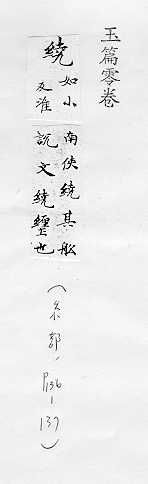 玉篇零卷
繞
如小
反淮
南俠繞其舩
說文繞纏也
(糸部, P136-137)